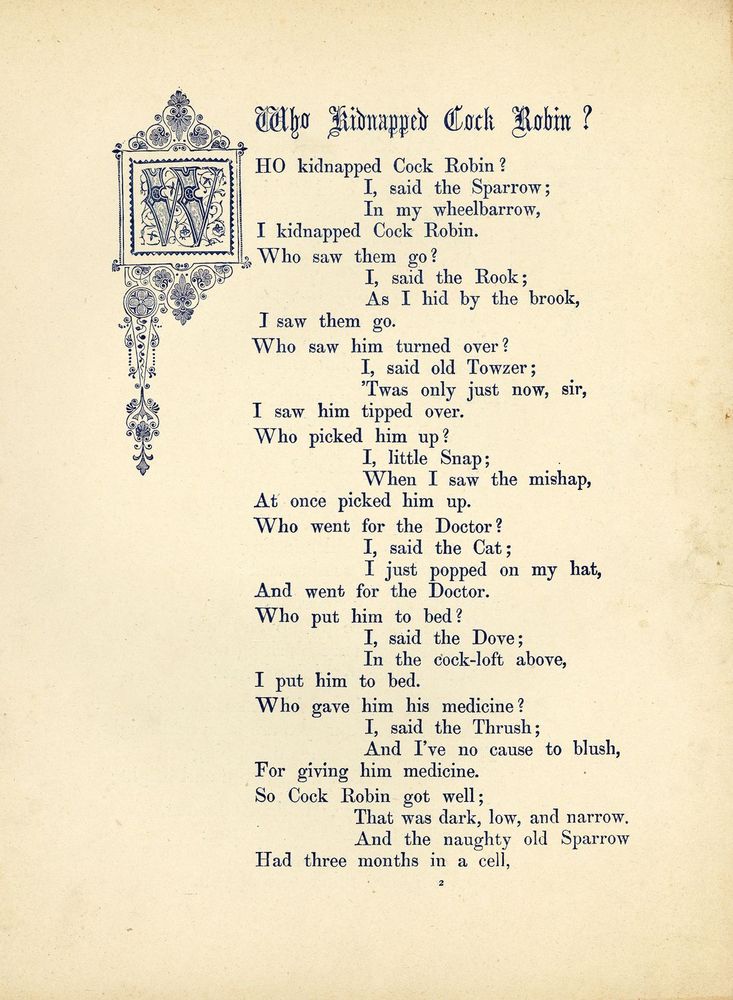 Who Kidnapped Cock Robin?
WHO kidnapped Cock Robin?
I, said the Sparrow;
In my wheelbarrow,
I kidnapped Cock Robin.
Who saw them go?
I, said the Rook;
As I hid by the brook,
I saw them go.
Who saw him turned over?
I, said old Towzer;
'Twas only just now, sir,
I saw him tipped over.
Who picked him up?
I, little Snap;
When I saw the mishap,
At once picked him up.
Who went for the Doctor?
I, said the Cat;
I just popped on my hat,
And went for the Doctor.
Who put him to bed?
I, said the Dove;
In the cock-loft above,
I put him to bed.
Who gave him his medicine?
I, said the Thrush;
And I've no cause to blush,
For giving him medicine.
So Cock Robin got well;
That was dark, low, and narrow.
And the naughty old Sparrow
Had three months in a cell,
2